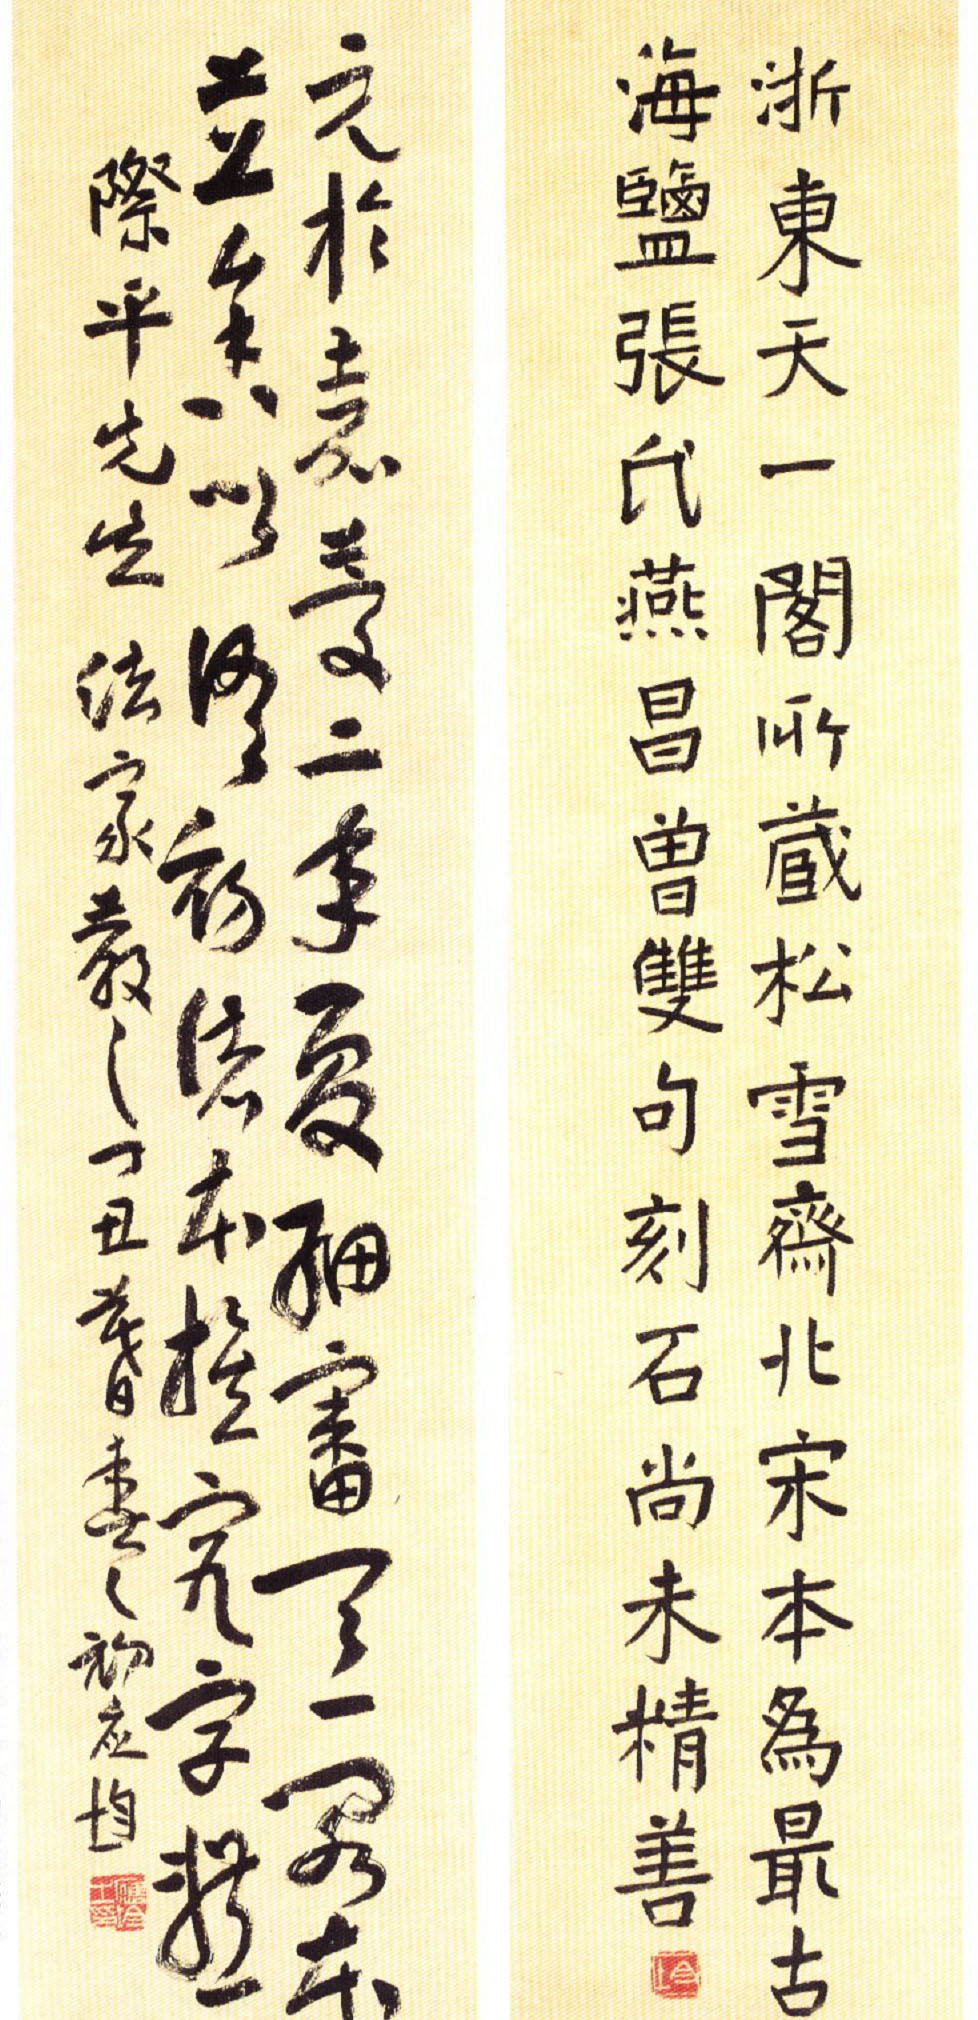 浙東天一閣所藏松雪齋北宋本為最古
海鹽張氏燕昌曾雙句刻石尚未精善
元於嘉慶二年夏細審天一閣本
並參以初諸本推究字體
際平先生 法家教之丁丑暮春之初應均